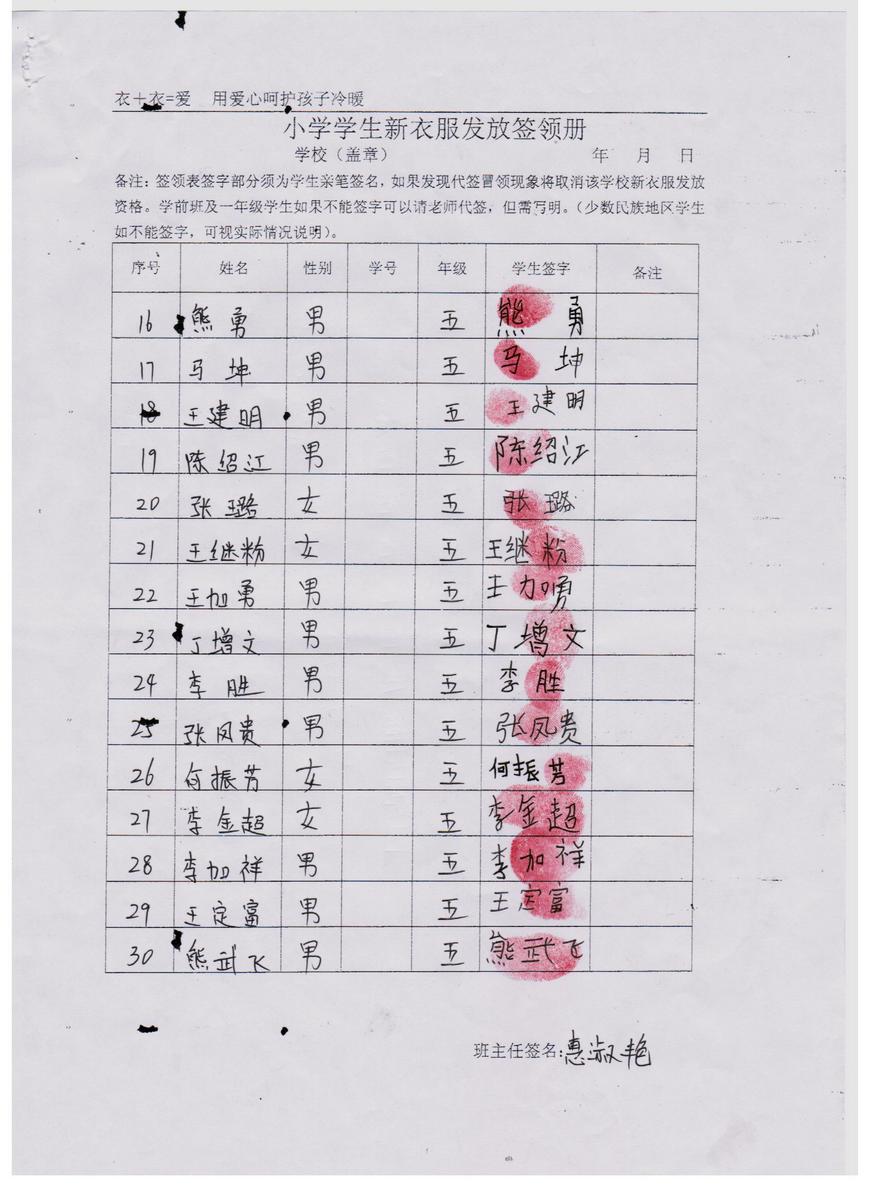 衣＋衣=爱 用爱心呵护孩子冷暖
小学学生新衣服发放签领册
学校（盖章） 年 月 日
备注：签领表签字部分须为学生亲笔签名，如果发现代签冒领现象将取消该学校新衣服发放
资格。学前班及一年级学生如果不能签字可以请老师代签，但需写明。（少数民族地区学生
如不能签字，可视实际情况说明）。
序号 姓名 性别 学号 年级 学生签字 备注
16 熊勇 男 五 熊勇
17 马坤 男 五 马坤
18 王建明 男 五 王建明
19 陈绍江 男 五 陈绍江
20 张璐 女 五 张璐
21 王继粉 女 五 王继粉
22 王加勇 男 五 王加勇
23 丁增文 男 五 丁增文
24 李胜 男 五 李胜
25 张凤贵 男 五 张凤贵
26 何振芳 女 五 何振芳
27 李金超 女 五 李金超
28 李加祥 男 五 李加祥
29 王定富 男 五 王定富
30 熊武飞 男 五 熊武飞
班主任签名：惠淑艳